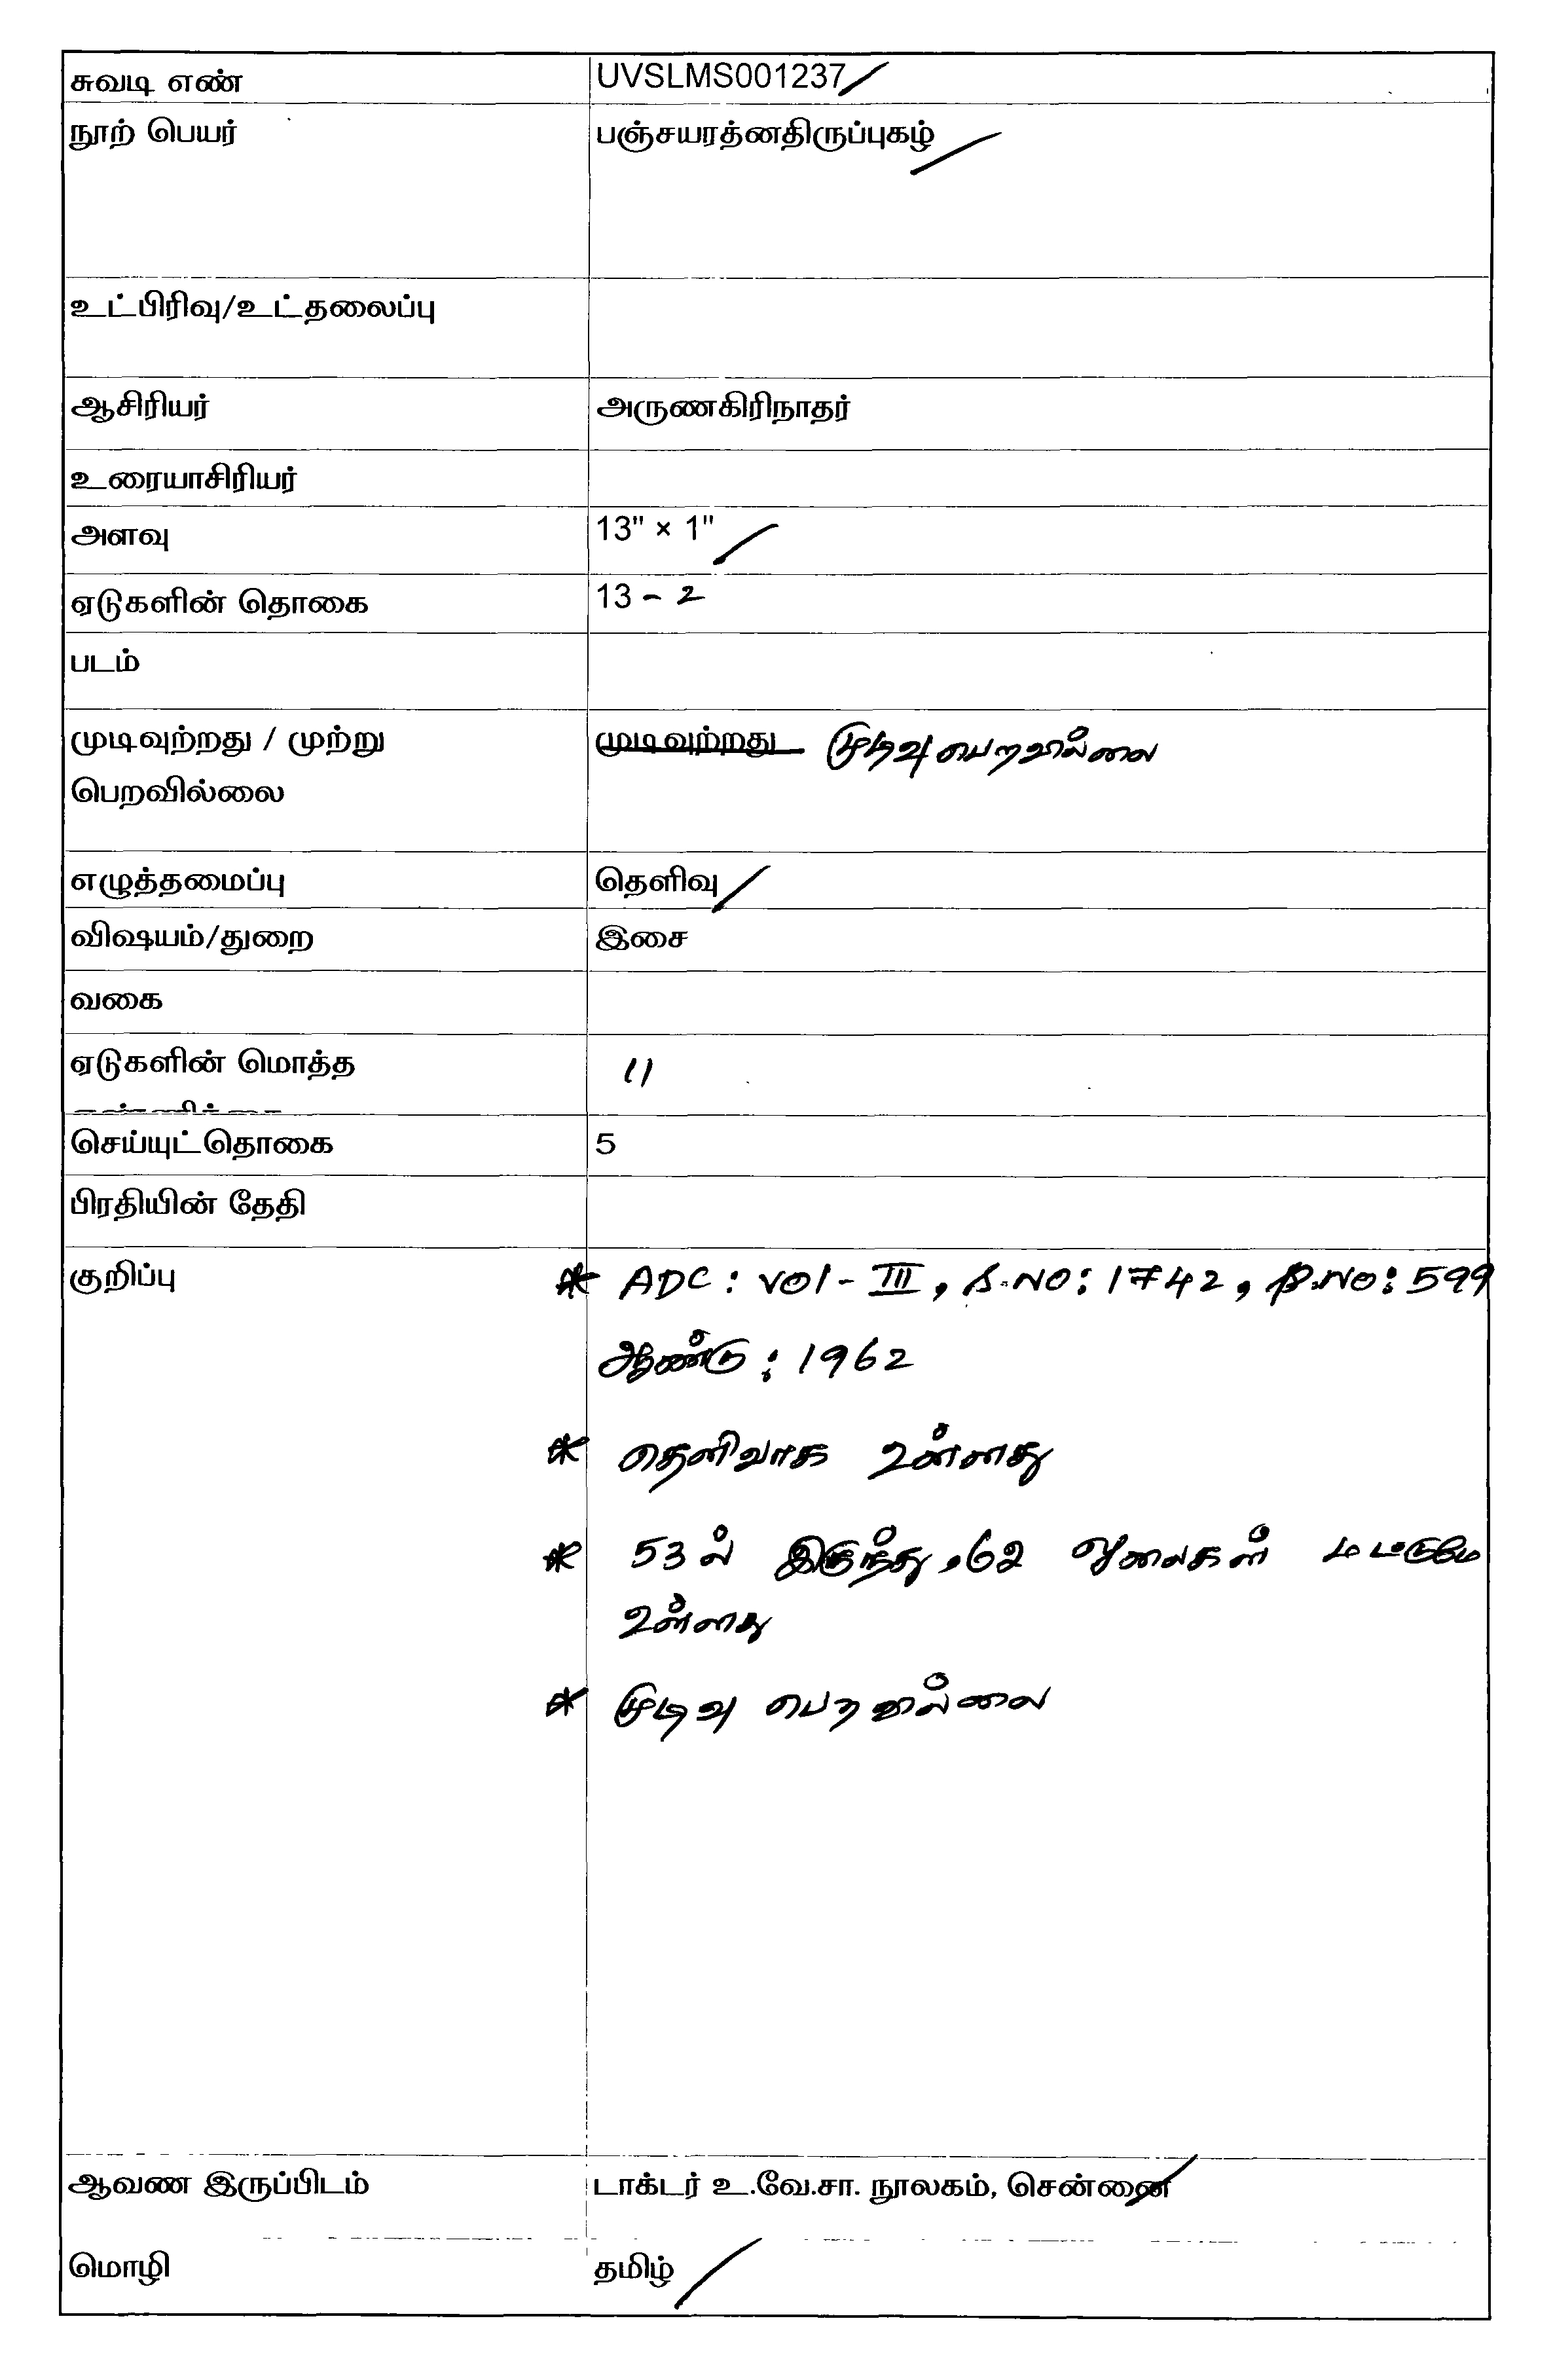 சுவடி எண் UVSLMS001237
நூற் பெயர் பஞ்சயரத்னதிருப்புகழ்
உட்பிரிவு/உட்தலைப்பு
ஆசிரியர் அருணகிரிநாதர்
உரையாசிரியர்
அளவு 13" × 1"
ஏடுகளின் தொகை 13 - 2
படம்
முடிவுற்றது / முற்று முடிவுற்றது முடிவு பெறவில்லை
பெறவில்லை
எழுத்தமைப்பு தெளிவு
விஷயம்/துறை இசை
வகை
ஏடுகளின் மொத்த 11
செய்யுட்தொகை 5
பிரதியின் தேதி
குறிப்பு * ADC : VOl - III , S.NO : 1742 , P.NO : 599
ஆண்டு : 1962
* தெளிவாக உள்ளது
* 53 ல் இருந்து 62 ஓலைகள் மட்டுமே
உள்ளது
* முடிவு பெறவில்லை
ஆவண இருப்பிடம் டாக்டர் உ.வே.சா. நூலகம், சென்னை
மொழி தமிழ்